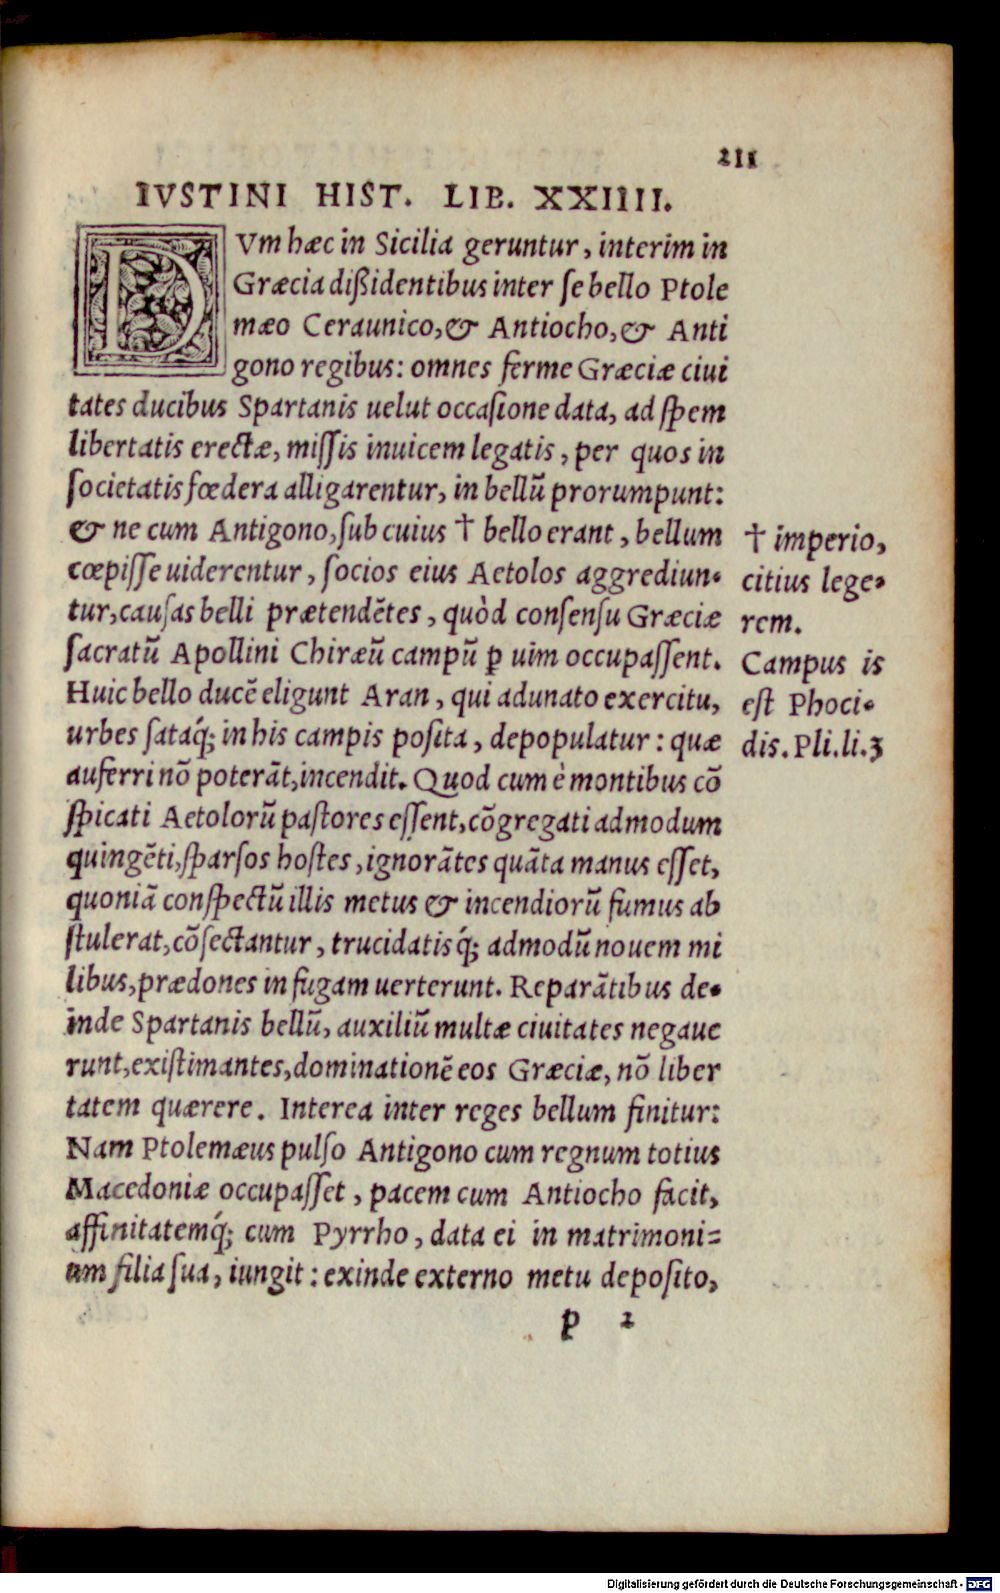 211
IVSTINI HIST. LIB. XXIIII.
DVm hæc in Sicilia geruntur, interim in
Græcia dißidentibus inter ſe bello Ptole
mæo Ceraunico, & Antiocho, & Anti
gono regibus: omnes ferme Græciæ ciui
tates ducibus Spartanis uelut occaſione data, ad ſpem
libertatis erectæ, miſſis inuicem legatis, per quos in
ſocietatis fœdera alligarentur, in bellū prorumpunt:
& ne cum Antigono, ſub cuius † bello erant, bellum
cœpiſſe uiderentur, ſocios eius Aetolos aggrediun-
tur, cauſas belli prætendētes, quòd conſenſu Græciæ
ſacratū Apollini Chiræū campū ꝑ uim occupaſſent.
Huic bello ducē eligunt Aran, qui adunato exercitu,
urbes ſataq́; in his campis poſita, depopulatur: quæ
auferri nō poterāt, incendit. Quod cum è montibus cō
ſpicati Aetolorū paſtores eſſent, cōgregati admodum
quingēti, ſparſos hoſtes, ignorātes quāta manus eſſet,
quoniā conſpectū illis metus & incendiorū fumus ab
ſtulerat, cōſectantur, trucidatisq́; admodū nouem mi
libus, prædones in fugam uerterunt. Reparātibus de-
inde Spartanis bellū, auxiliū multæ ciuitates negaue
runt, exiſtimantes, dominationē eos Græciæ, nō liber
tatem quærere. Interea inter reges bellum finitur:
Nam Ptolemæus pulſo Antigono cum regnum totius
Macedoniæ occupaſſet, pacem cum Antiocho facit,
affinitatemq́; cum Pyrrho, data ei in matrimoni-
um filia ſua, iungit: exinde externo metu depoſito,
p 2
† imperio,
citius lege-
rem.
Campus is
eſt Phoci-
dis. Pli. li. 3
Digitalisierung gefördert durch die Deutsche Forschungsgemeinschaft - DFG